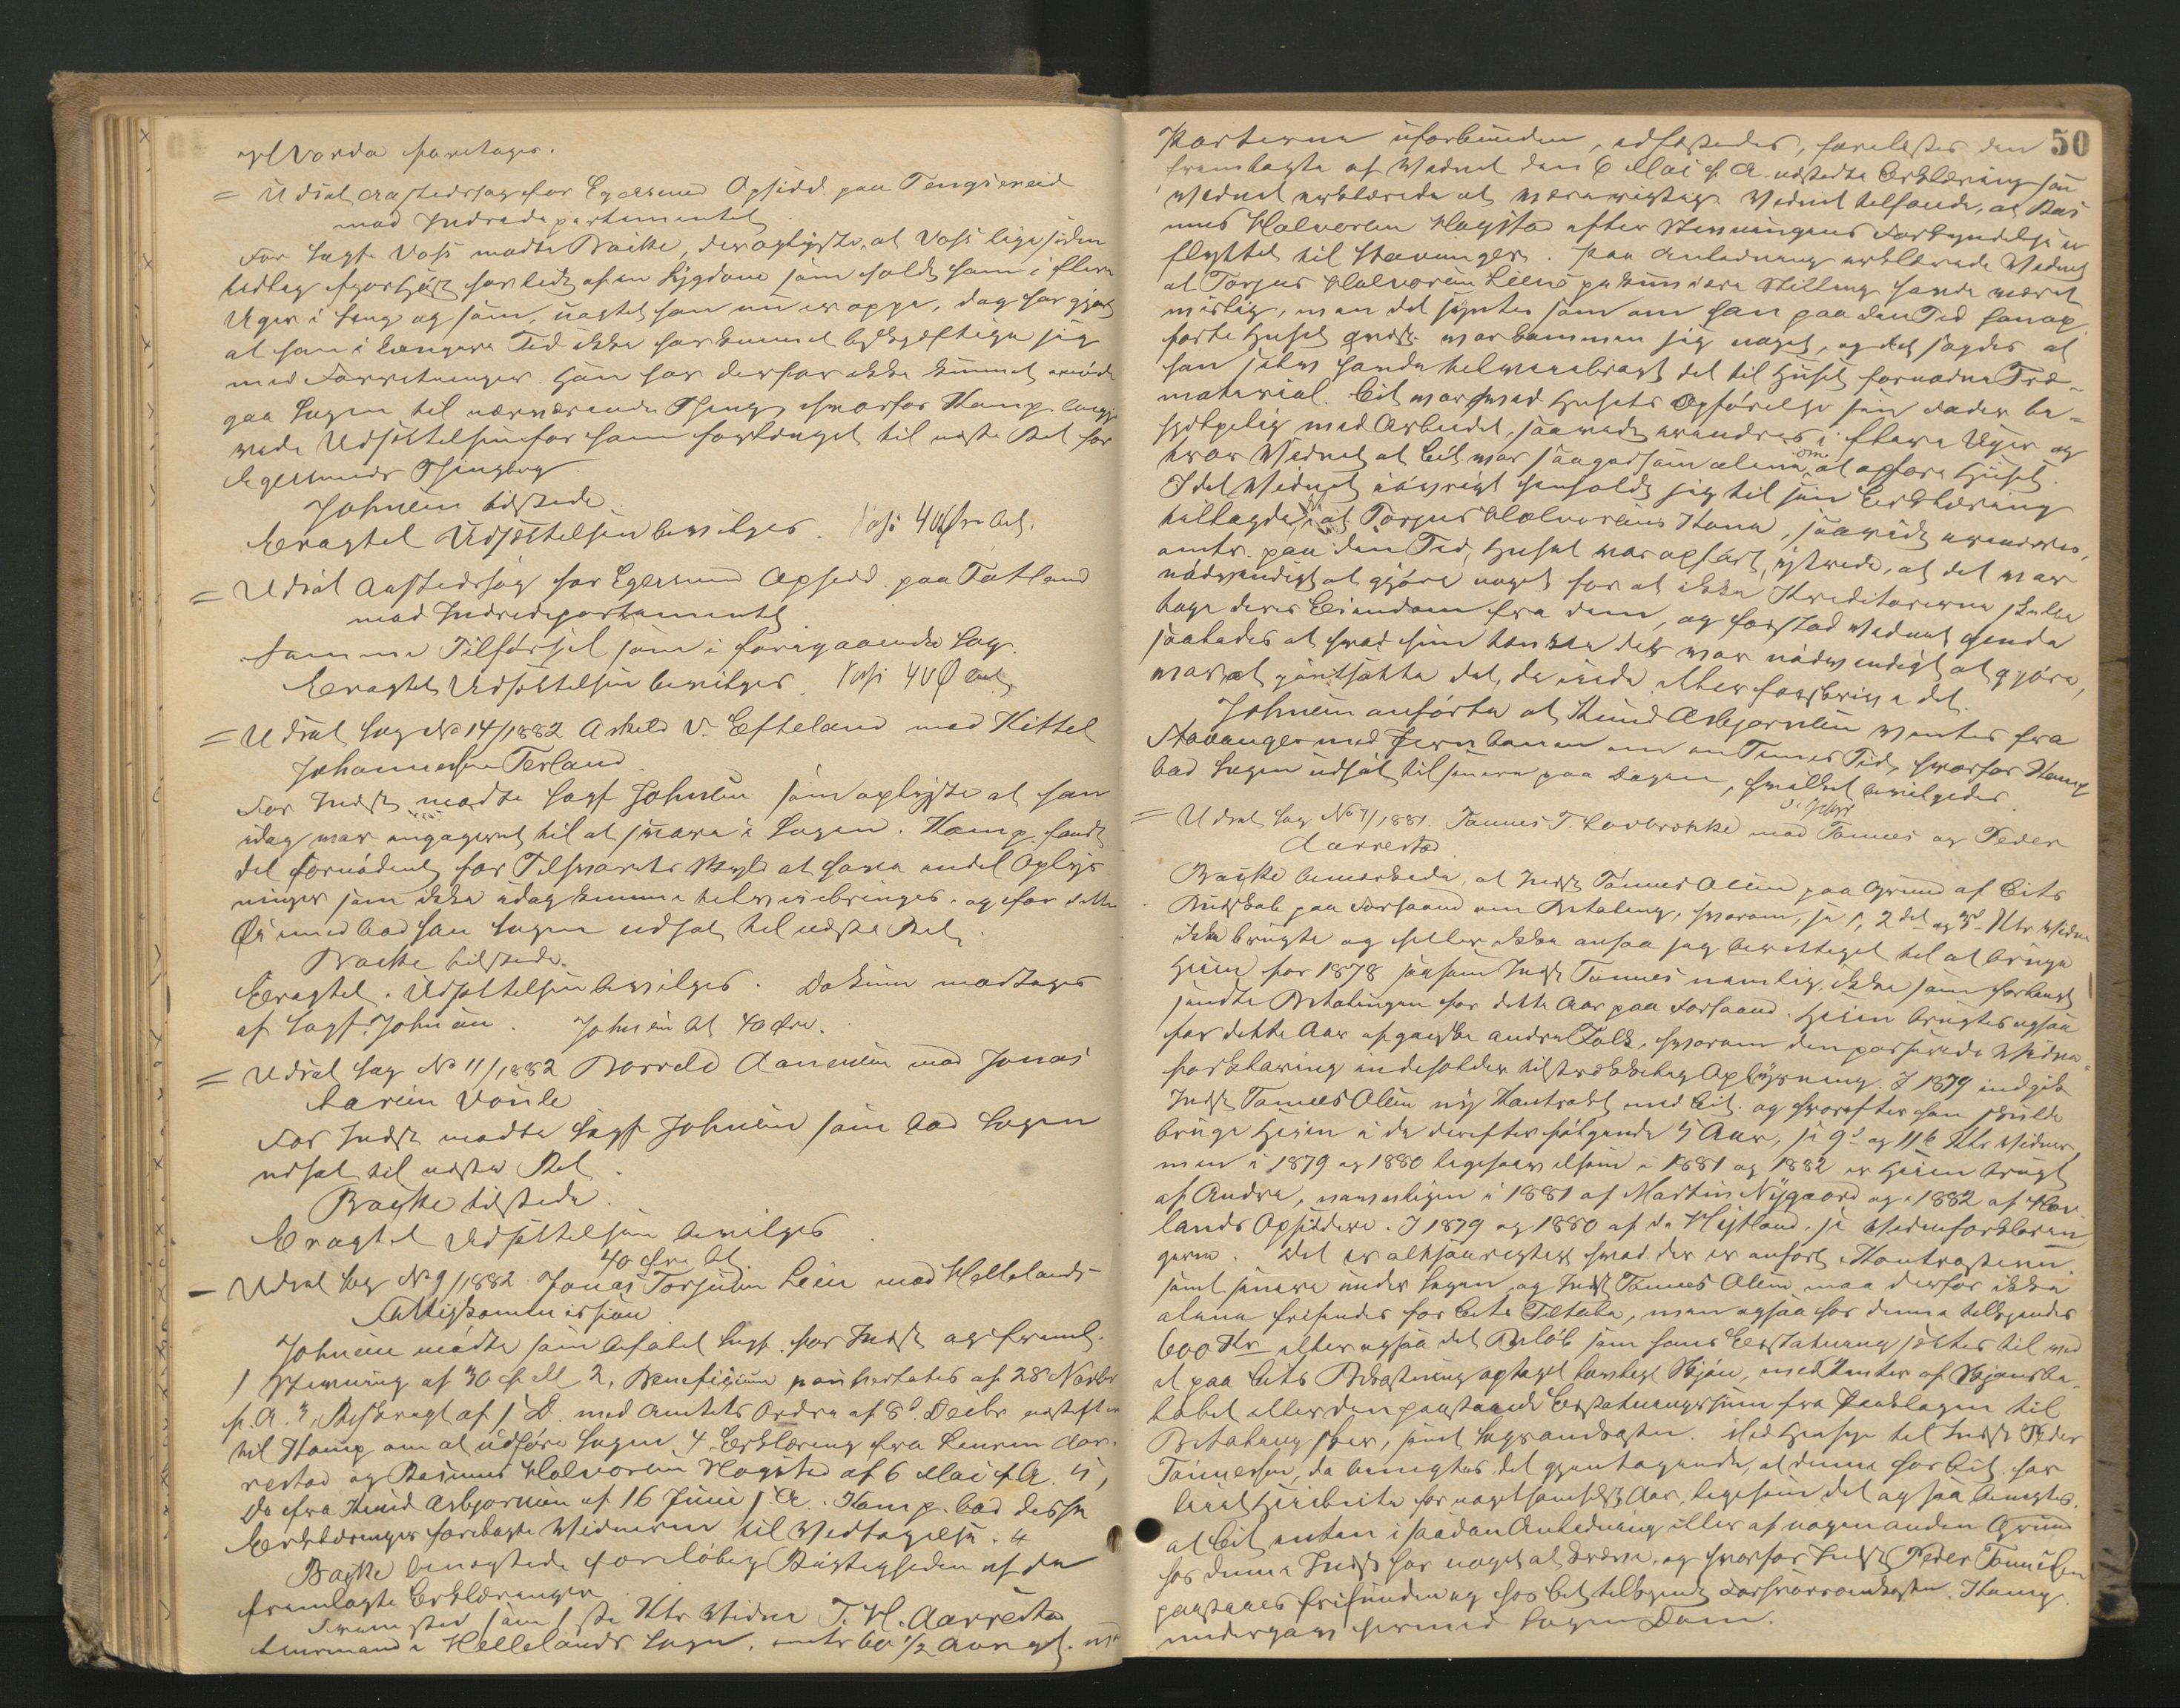 at vorde foretages.
= Udsat Aastedssag for Egersund Opsidd. paa Tengsereid
mod Indredepartementet
For Sagf. Voss mødte Backe, der oplyste, at Voss ligesiden
har ledet af en Sygdom som holdt ham i flere
Uger i Seng og som, uagtet han nu er oppe, dog har gjort
at han i længere Tid ikke har kunnet beskjæftige sig
med Forretninger. Han har derfor ikke kunnet
gaa Sagen til nærværende Thing, hvorfor Komp.
Udsættelse for ham forlanget til næste Ret for
Egersunds Thinglag.
Johnsen tilstede.
Eragtet Udsættelsen bevilges. Voss 40 Øre bet.
= Udsat Aastedssag for Egersund Opsidd. paa Tatland
mod Indredepartementet
Samme Tilførsel som i foregaaende Sag.
Eragtet Udsættelsen bevilges. Voss 40 Ø bet.
= Udsat Sag No 14/1882 Askild V. Efteland mod Kittel
Johannessen Terland.
For Indst. mødte Sagf. Johnsen som oplyste at han
idag var engageret til at svare i Sagen. Komp. fandt
det fornødent for Tilsvarets Skyld at have endel Oplys
ninger som ikke idag kunne tilveiebringes, og for dette
Øiemed bad han Sagen udsat til næste Ret.
Backe tilstede.
Eragtet. Udsættelsen bevilges. Dokum modtages
af Sagf. Johnsen. Johnsen bet 40 Øre.
= Udsat Sag No 11/1882 Borrild Aanensen mod Jonas
Larsen Vaule
For Indst mødte Sagf Johnsen som bad Sagen
udsat til næste Ret.
Backe tilstede.
Eragtet Udsættelsen bevilges
40 Øre bet
- Udsat Sag No 9/1882 Jonas Torjusen Leen mod Hellelands
Fattigkommission
Johnsen mødte som befalet Sagf. for Indst og freml.
1 Stevning af 30 f. M 2, Beneficium paupertatis af 28 Novbr
f. A. 3, Rekvegt af s. D. med Amtets Ordre af 8d. Decbr næstefter
til Komp om at udføre Sagen, 4 Erklæring fra Lensm. Aar-
restad og Rasmus Halvorsen Hogstad af 6 Mai f A. 5,
Do fra Knud Asbjørnsen af 16 Juni s. A. Komp. bad disse
Erklæringer forelagte Vidnerne til Vedtagelse.
Backe benegtede foreløbig Rigtigheden af de
fremlagte Erklæringer
Fremstod som 1ste Ktr Vidne T. H. Aarrestad
Lensmand i Hellelands Sogn, 60 1/2 Aar gl.
50
Parterne uforbunden, edfæstedes, forelæstes den
fremlagte af Vidnet den 6 Mai f A udstedte Erklæring som
Vidnet erklærede at være rigtig. Vidnet tilføiede, at Ras
mus Halvorsen Hogstad efter Stevningens Forkyndelse er
flyttet til Stavanger. Paa Anledning erklærede Vidnet
at Torjus Halvorsen Leens pekuniære Stilling havde været
mislig, men det syntes som om han paa den Tid han op
førte Huset var kommen sig noget, og det sagdes at
han selv havde tilveiebragt det til Huset fornødne Træ-
material. Cit. var ved Husets Opførelse sin Fader be-
hjelpelig med Arbeidet, saavidt erindres i flere Uger og
tror Vidnet at Cit. var saagodsom alene om at opføre Huset.
Idet Vidnet iøvrigt henholdt sig til sin Erklæring
tillagdes, at Torjus Halvorsens Kone, saavidt erindres,
paa den Tid, Huset var opført, ytrede, at det var
nødvendigt at gjøre noget for at ikke Kreditorerne skulde
tage deres Eiendom fra dem, og forstod Vidnet hende
saaledes at hvad hun tænkte det var nødvendigt at gjøre,
var at pantsætte det, da eller forskrive det.
Johnsen anførte at Knud Asbjørnsen ventes fra
Stavanger med Jernbanen om en Times Tid, hvorfor Komp
bad Sagen udsat til senere paa Dagen, hvilket bevilgedes.
= Udsat Sag No 7/1881. Tønnes T. Lovbrække mod Tønnes og Peder
Aarrestad
Backe bemærkede, at Indst. Tønnes Olsen paa Grund af Cits
Budskab paa Forhaand om Betaling, hvorom, se 1, 2det og 3d Ktr Vidne
ikke brugte og heller ikke ansaa sig berettiget til at bruge
Heien for 1878 saasom Indst Tønnes nemlig ikke som forlangt
sendte Betalingen for dette Aar paa Forhaand. Heien brugtes ogsaa
for dette Aar af ganske andre Folk, hvorom den passerede Vidne-
forklaring indeholder tilstrækkelig Oplysning. I 1879 indgik
Indst Tønnes Olsen ny Kontrakt med Cit. og hvorefter han skulde
bruge Heien i de derefter følgende 5 Aar, se 9d og 11te Ktr Vidner
men i 1879 og 1880 ligesaavelsom i 1881 og 1882 er Heien brugt
af Andre, navnligen i 1881 af Martin Nygaard og i 1882 af Hov
lands Opsiddere. I 1879 og 1880 af de Hytland, se Vidneforklarin
gerne. Det er altsaa rigtigt hvad der er anført i Kontrasten
samt senere under Sagen, og Indst Tønnes Olsen maa derfor ikke
alene frifindes for Cits Tiltale, men ogsaa for denne tilkjendes
600 Kr eller ogsaa det Beløb som hans Erstatning sættes til ved
et paa Cits Bekostning optaget lovligt Skjøn, med Renter af Skjønsbe-
løbet eller den paastaaede Erstatningssum fra Paaklagen til
Betaling sker, samt Sagsomkosten. Med Hensyn til Indst Peder
Tønnesen, da benegtes det gjentagende, at denne for Cit. har
leiet Heibeite for noget somhelst Aar, ligesom det ogsaa benegtes
at Cit enten i saadan Anledning eller af nogen anden Grund
hos denne Indst har noget at kræve, og hvorfor Indst Peder Tønnesen
paastaaes frifunden og hos Cit tilkjendt Forsvarsomkosten. Komp
undergav hermed Sagen Dom.